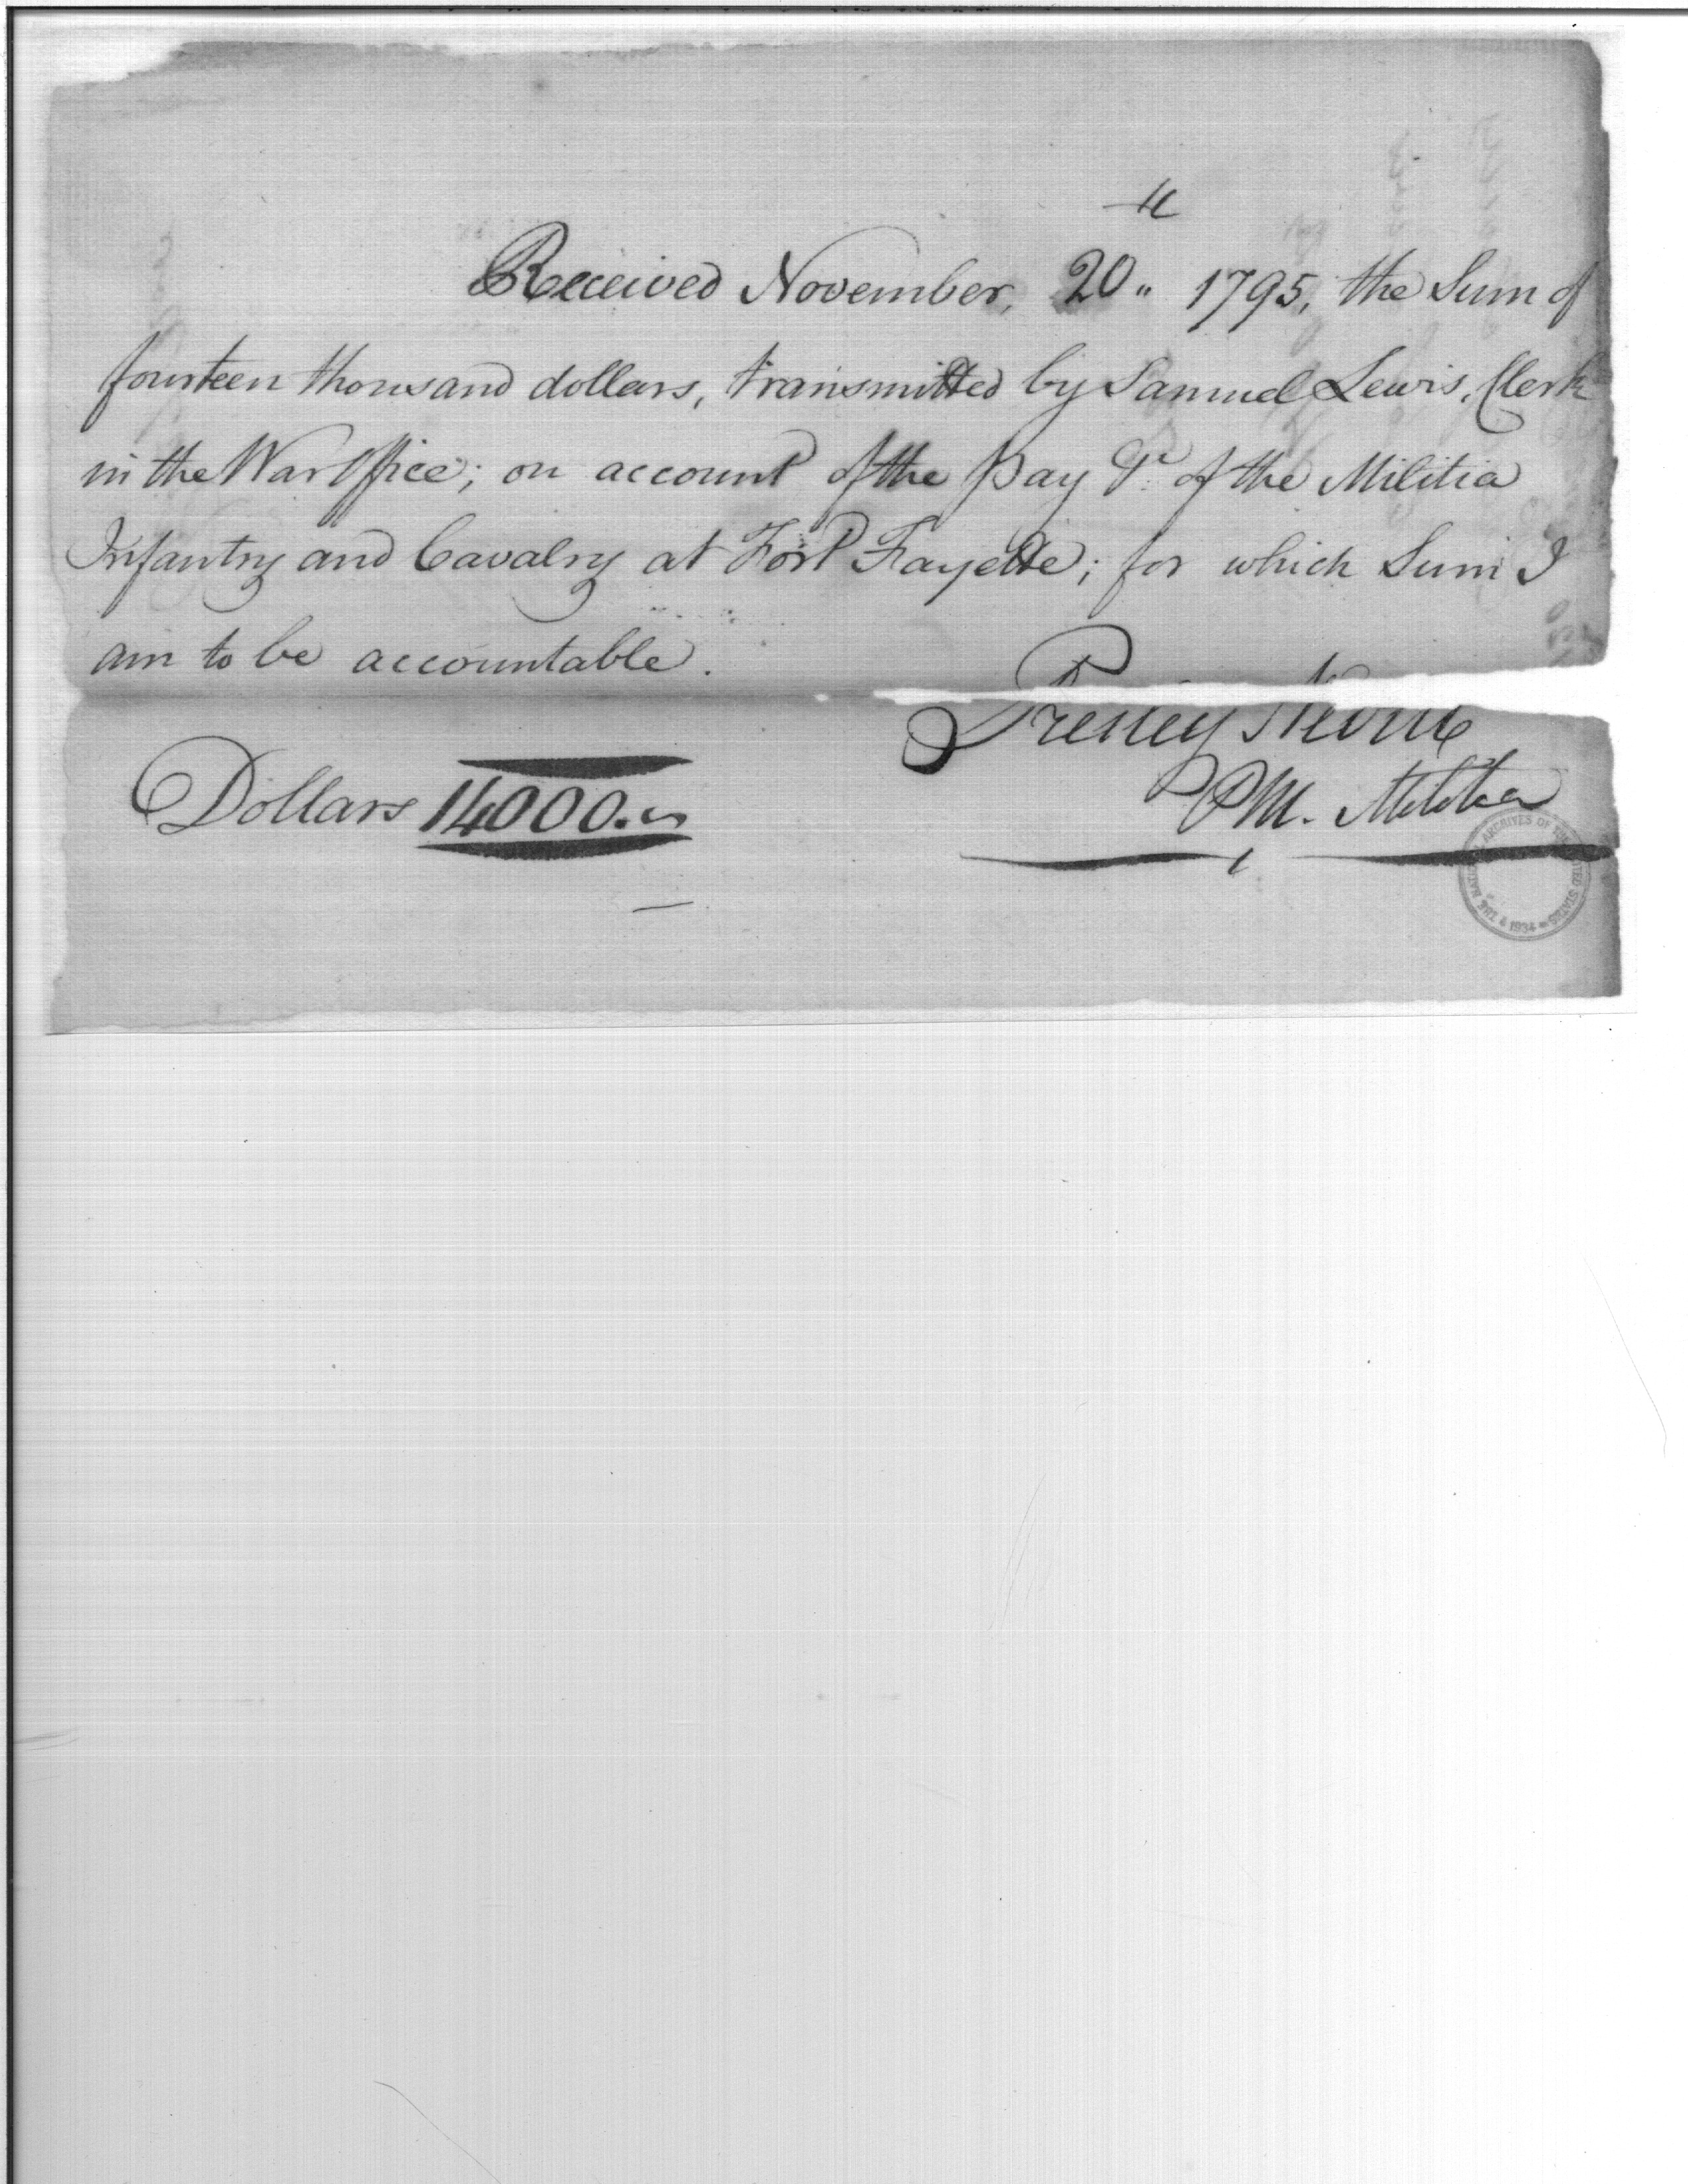 Received November, 20th 1795, the Sum of
fourteen thousand dollars, transmitted by Samuel Lewis, Clerk
in the War Office; on account of the Pay &c. of the Militia
Infantry and Cavalry at Fort Fayette; for which Sum I
am to be accountable.
Presley Nevill
PM. Militia
Dollars 14000.
THE NATIONAL ARCHIVES OF THE UNITED STATES
1934